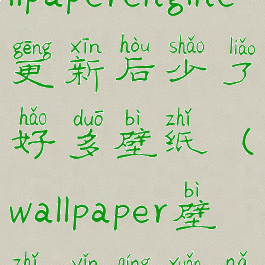 llpaperengine
gēng xīn hòu shǎo liǎo
更新后少了
hǎo duō bì zhǐ
好多壁纸（
bì
wallpaper壁
zhǐ yǐn qíng xuǎn nǎ